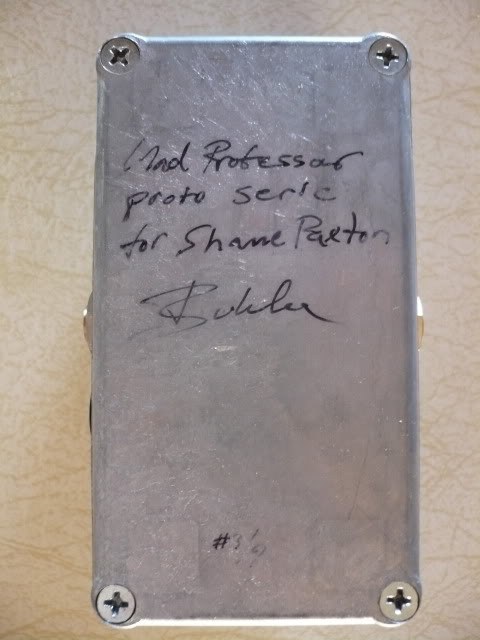 Mad Professor
proto serie
for Shane Paxton
#3/9